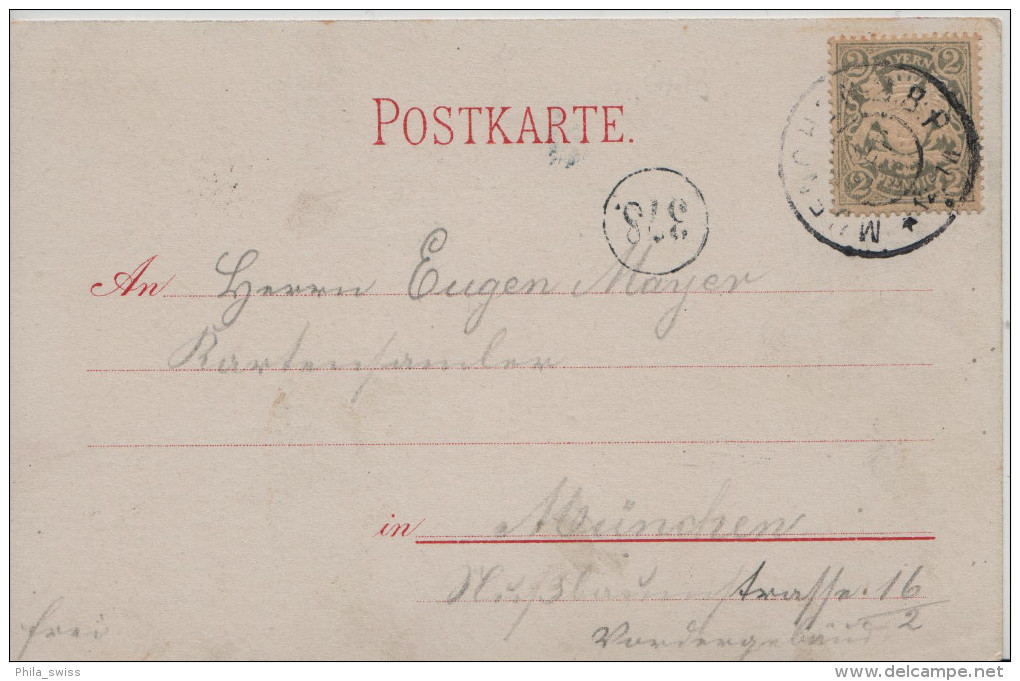 POSTKARTE.
BAYERN
2 2
2 PFENNIG 2
378.
An Herrn Eugen Mayer
Kartensamler
in München
Nußbaumstrasse 16/2
Vordergebäude
frei
Phila_swiss
www.delcampe.net